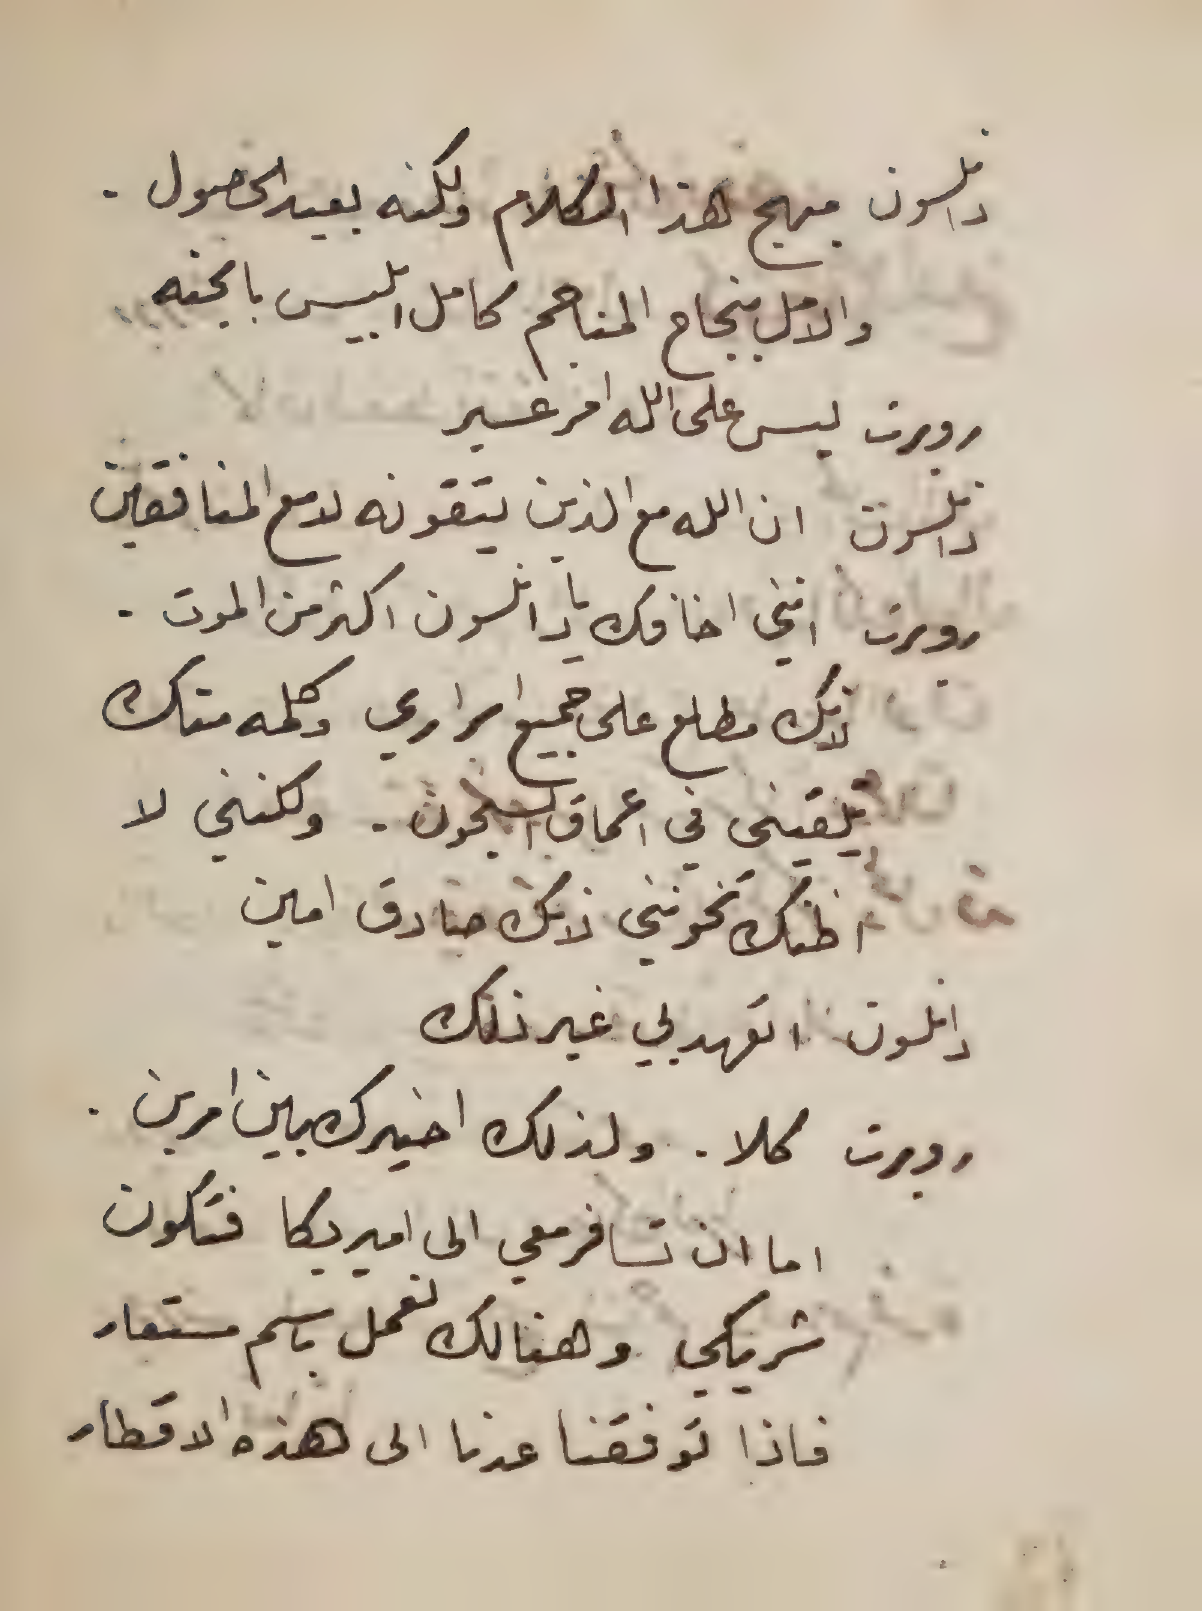 دانلسون مبهج هذا الكلام ولكنه بعيد الحصول .
والامل بنجاح المناجم كامل ابليس بالجنه
روبرت ليس على الله امر عسير
دانلسون ان الله مع الذين يتقونه لا مع المنافقين
روبرت انني اخافك يا دانلسون اكثر من الموت .
لانك مطلع على جميع اسراري وكلمه منك
تلقيني في اعماق السجون . ولكنني لا
اظنك تخونني لانك صادق امين
دانلسون اتعهد بي غير ذلك
روبرت كلا . ولذلك اخيرك بين امرين .
اما ان تسافر معي الى اميريكا فتكون
شريكي وهنالك نعمل باسم مستعار
فاذا توفقنا عدنا الى هذه الاقطار